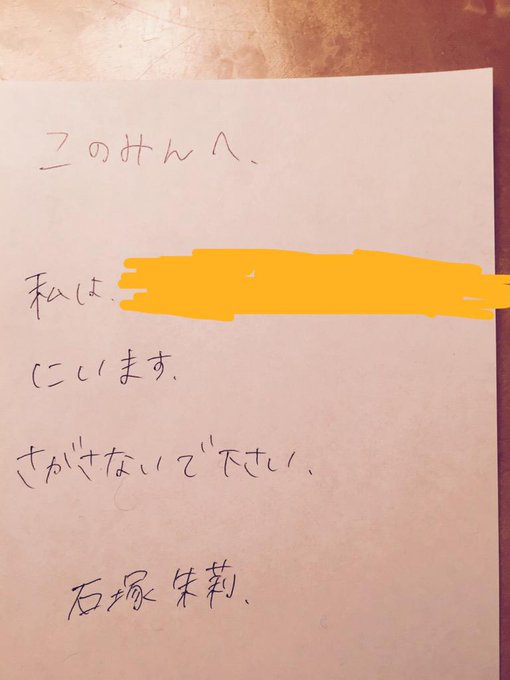 このみんへ、
私は、
にいます。
さがさないで下さい、
石塚朱莉、